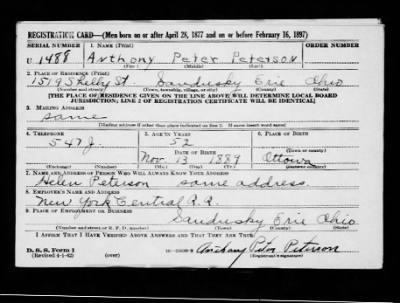 REGISTRATION CARD—(Men born on or after April 28, 1877 and on or before February 16, 1897)
SERIAL NUMBER 1. NAME (Print) ORDER NUMBER
U 1488 Anthony Peter Peterson
(First) (Middle) (Last)
2. PLACE OF RESIDENCE (Print)
1519 Shelby St. Sandusky Erie Ohio
(Number and street) (Town, township, village, or city) (County) (State)
[THE PLACE OF RESIDENCE GIVEN ON THE LINE ABOVE WILL DETERMINE LOCAL BOARD
JURISDICTION; LINE 2 OF REGISTRATION CERTIFICATE WILL BE IDENTICAL]
3. MAILING ADDRESS
same
[Mailing address if other than place indicated on line 2. If same insert word same]
4. TELEPHONE 5. AGE IN YEARS 6. PLACE OF BIRTH
547 J. 52
DATE OF BIRTH (Town or county)
Nov. 13 1889 Ottowa
(Exchange) (Number) (Mo.) (Day) (Yr.) (State or country)
7. NAME AND ADDRESS OF PERSON WHO WILL ALWAYS KNOW YOUR ADDRESS
Helen Peterson same address.
8. EMPLOYER'S NAME AND ADDRESS
New York Central R.R.
9. PLACE OF EMPLOYMENT OR BUSINESS
Sandusky Erie Ohio
(Number and street or R. F. D. number) (Town) (County) (State)
I AFFIRM THAT I HAVE VERIFIED ABOVE ANSWERS AND THAT THEY ARE TRUE.
D. S. S. Form 1
(Revised 4-1-42) (over) Anthony Peter Peterson
(Registrant's signature)